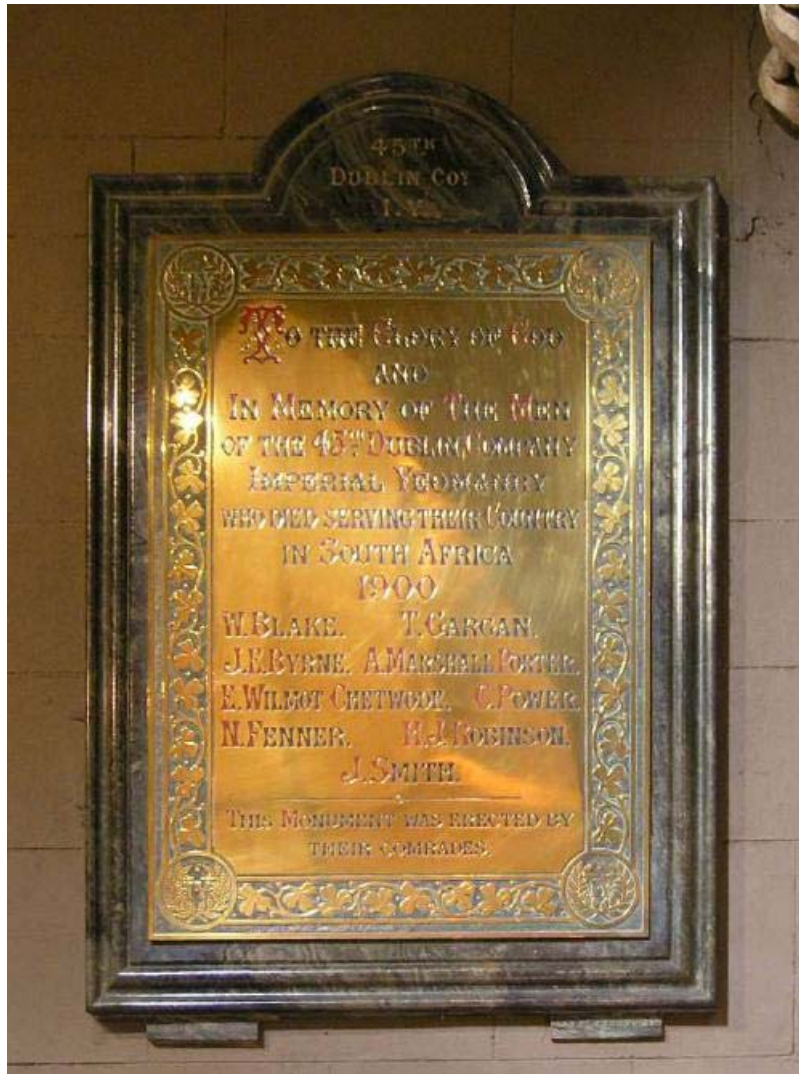 45TH
DUBLIN COY
I.Y.
TO THE GLORY OF GOD
AND
IN MEMORY OF THE MEN
OF THE 45TH DUBLIN COMPANY
IMPERIAL YEOMANRY
WHO DIED SERVING THEIR COUNTRY
IN SOUTH AFRICA
1900
W. BLAKE. T. GARGAN.
J.E. BYRNE. A. MARSHALL PORTER.
E. WILMOT CHETWODE. C. POWER.
N. FENNER. H.J. ROBINSON.
J. SMITH.
THIS MONUMENT WAS ERECTED BY
THEIR COMRADES.